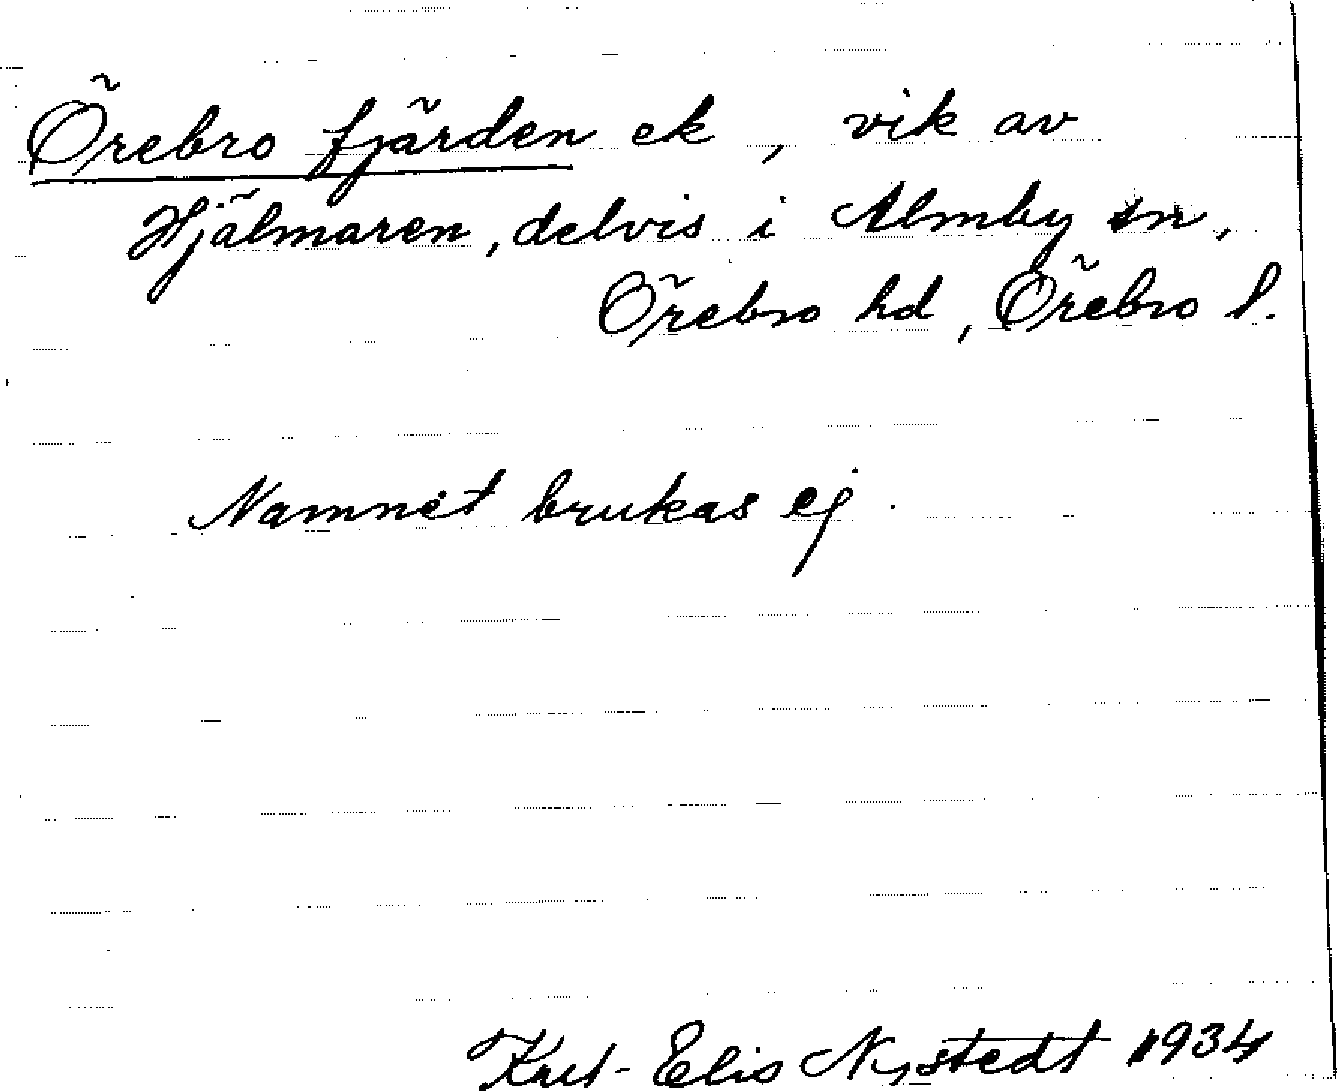 Örebro fjärden ek, vik av
Hjälmaren, delvis i Almby sn,
Örebro hd, Örebro l.
Namnet brukas ej.
Karl-Elis Nystedt 1934